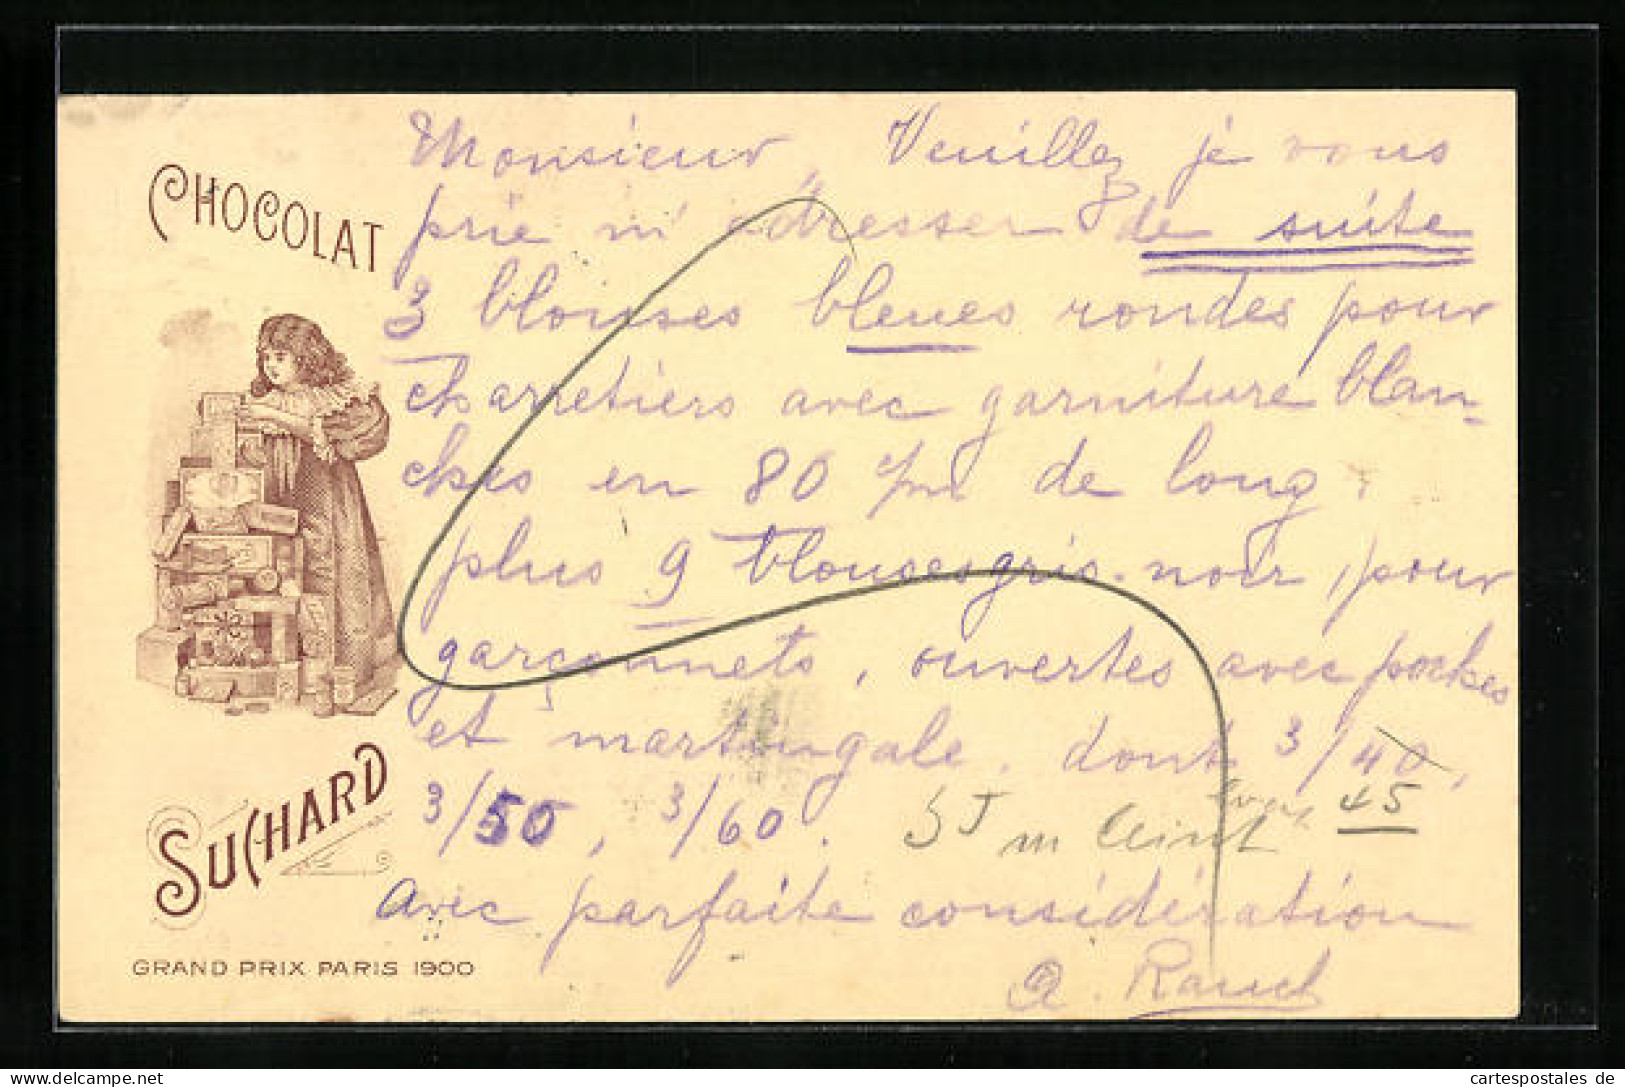 CHOCOLAT
SUCHARD
GRAND PRIX PARIS 1900
Monsieur, Veuillez je vous
prie m'adresser de suite
3 blouses bleues rondes pour
charretiers avec garniture blan-
ches en 80 c/m de long,
plus 9 blouses gris-noir, pour
garçonnets, ouvertes avec poches
et martingale, dont 3/40,
3/50, 3/60. 45
avec parfaite considération
A. Rauch
116D
cartespostales de